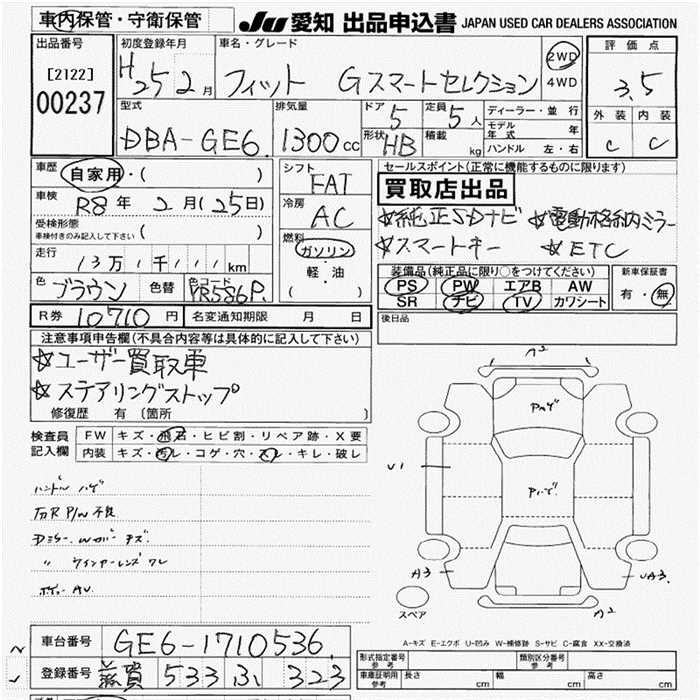 車内保管・守衛保管
JU 愛知 出品申込書 JAPAN USED CAR DEALERS ASSOCIATION
出品番号
[2122]
00237
初度登録年月
H25 2月
車名・グレード
フィット Gスマートセレクション
2WD
4WD
評価点
3.5
外装 内装
C C
型式
DBA-GE6
排気量
1300cc
ドア 5
形状 HB
定員 5人
積載 kg
ディーラー・並行
モデル年式 年
ハンドル 左・右
車歴
自家用・( )
車検
R8年 2月(25日)
受検形態
車検付きのみ記入して下さい ( )
走行
13万1千111km
色
ブラウン
色替
色コード
YR586P
シフト
FAT
冷房
AC
燃料
ガソリン
・
軽・油
( )
セールスポイント(正常に機能するものに限ります)
買取店出品
☆純正SDナビ ☆電動格納ミラー
☆スマートキー ☆ETC
装備品(純正品に限り○をつけてください)
PS PW エアB AW
SR ナビ TV カワシート
新車保証書
有・無
R券 10710円
名変通知期限 月 日
後日品
注意事項申告欄(不具合内容等は具体的に記入して下さい)
☆ユーザー買取車
☆ステアリングストップ
修復歴 有 〔箇所 〕
検査員記入欄
FW キズ・飛石・ヒビ割・リペア跡・X要
内装 キズ・汚レ・コゲ・穴・スレ・キレ・破レ
ハンドル ハゲ
P/W 不良
Dミラー
〃 ウインカーレンズ ワレ
A2
Pハゲ
U1
Pハゲ
A3
UA3
A2
スペア
A-キズ E-エクボ U-凹み W-補修跡 S-サビ C-腐食 XX-交換済
車台番号 GE6-1710536
登録番号 滋賀 533 ふ 323
形式指定番号 参考
類別区分番号 参考
車庫証明用 参考
長さ cm 幅 cm 高さ cm